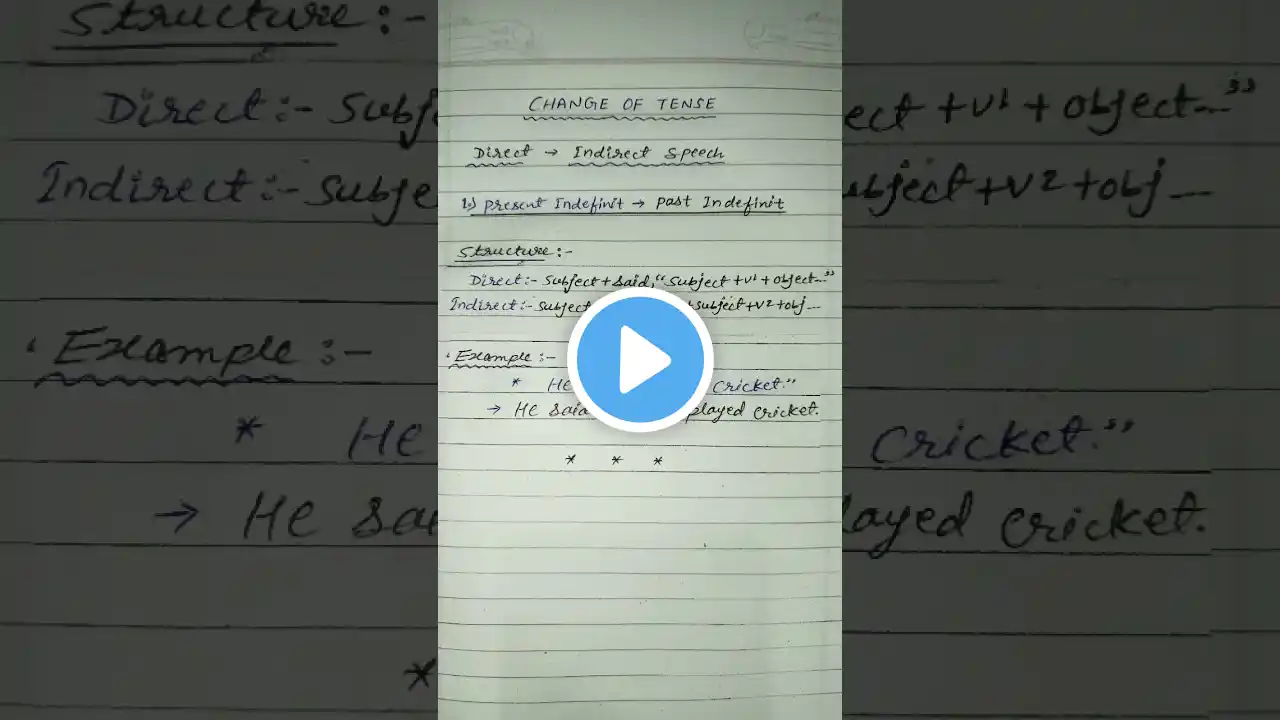 CHANGE OF TENSE
Direct → Indirect Speech
1.) Present Indefinit → Past Indefinit
Structure :-
Direct :- Subject + Said, "Subject + V¹ + Object..."
Indirect :- Subject subject + V² + obj ...
Example :-
* He Cricket."
→ He Said played cricket.
* * *